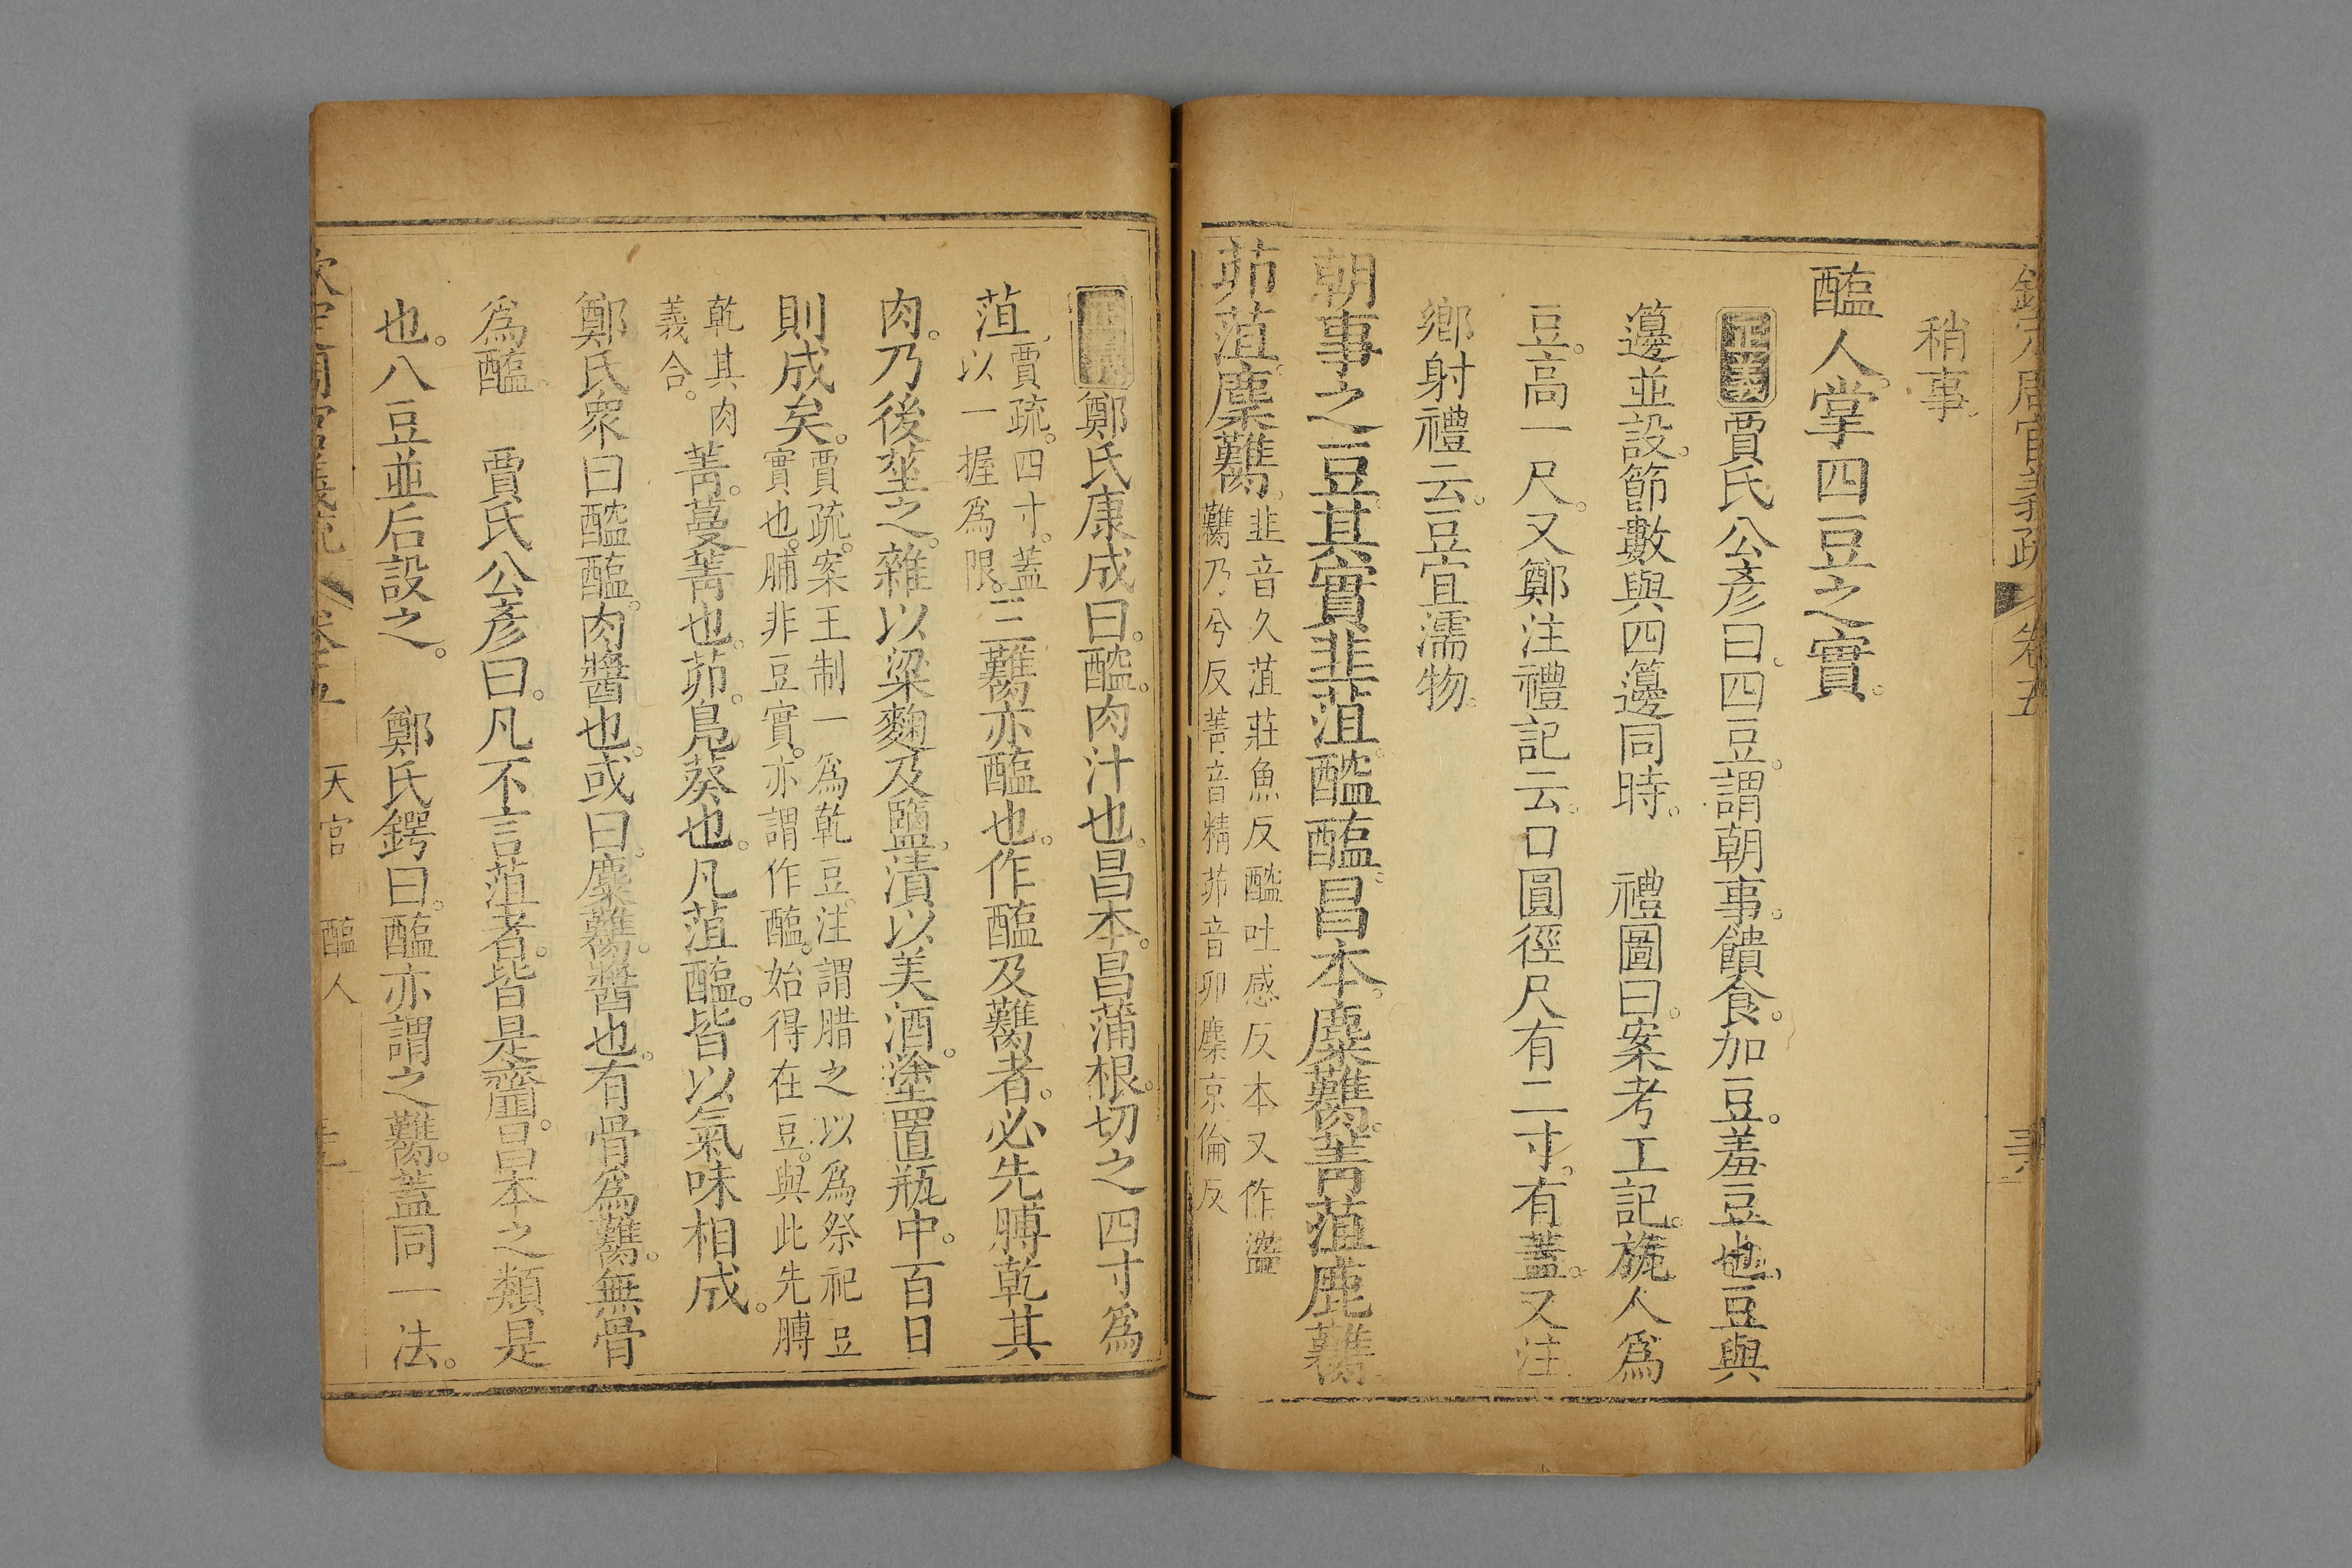 欽定周官義疏 卷五
稍事
醢人。掌四豆之實。
正義 賈氏公彥曰。四豆。謂朝事。饋食。加豆。羞豆也。豆與
籩並設。節數與四籩同時。 禮圖曰。案考工記。旊人為
豆。高一尺。又鄭注禮記云。口圓徑尺有二寸。有蓋。又注
鄉射禮云。豆宜濡物。
朝事之豆。其實韭菹。醓醢。昌本。麋臡。菁菹。鹿臡。
茆菹。麇臡。韭音久菹莊魚反醓吐感反本又作濫
臡乃兮反菁音精茆音卯麇京倫反
正義 鄭氏康成曰。醓。肉汁也。昌本。昌蒲根。切之四寸為
菹。賈疏。四寸。蓋
以一握為限。三臡亦醢也。作醢及臡者。必先膊乾其
肉。乃後莝之。雜以粱麴及鹽。漬以美酒。塗置瓶中。百日
則成矣。賈疏。案王制一為乾豆。注謂腊之以為祭祀豆
實也。脯非豆實。亦謂作醢。始得在豆。與此先膊
乾其肉
義合。菁。蔓菁也。茆。鳧葵也。凡菹醢。皆以氣味相成。
鄭氏眾曰。醓醢。肉醬也。或曰。麋臡。醬也。有骨為臡。無骨
為醢。 賈氏公彥曰。凡不言菹者。皆是齏。昌本之類是
也。八豆並后設之。 鄭氏鍔曰。醢亦謂之臡。蓋同一法。
欽定周官義疏 卷五 天官 醢人